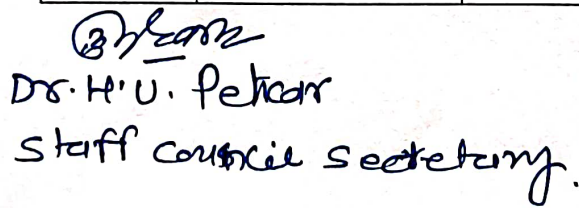 Dr. H. U. Petkar
Staff Council Secretary.